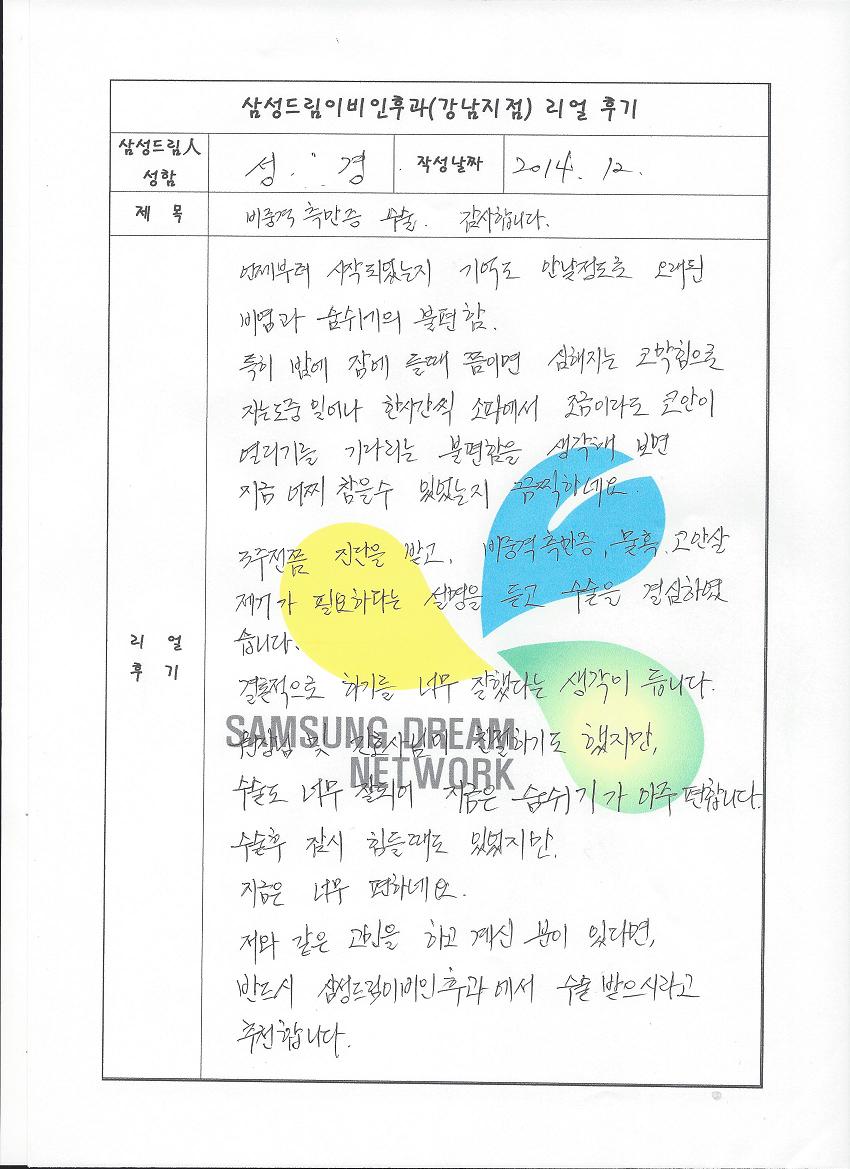 삼성드림이비인후과(강남지점) 리얼 후기
삼성드림人 성함
성 경
작성날짜
2014. 12.
제 목
비중격 측만증 수술. 감사합니다.
리 얼 후 기
언제부터 시작되었는지 기억도 안날정도로 오래된
비염과 숨쉬기의 불편함.
특히 밤에 잠에 들때 쯤이면 심해지는 코막힘으로
자는도중 일어나 한시간씩 소파에서 조금이라도 코안이
열리기를 기다리는 불편함을 생각해 보면
지금 어찌 참을수 있었는지 끔찍하네요.
3주전쯤 진단을 받고, 비중격측만증, 물혹, 코안살
제거가 필요하다는 설명을 듣고 수술을 결심하였
습니다.
결론적으로 하기를 너무 잘했다는 생각이 듭니다.
원장님 및 간호사님이 친절하기도 했지만,
수술도 너무 잘되어 지금은 숨쉬기가 아주 편합니다.
수술후 잠시 힘들때도 있었지만.
지금은 너무 편하네요.
저와 같은 고민을 하고 계신 분이 있다면,
반드시 삼성드림이비인후과에서 수술 받으시라고
추천합니다.
SAMSUNG DREAM
NETWORK